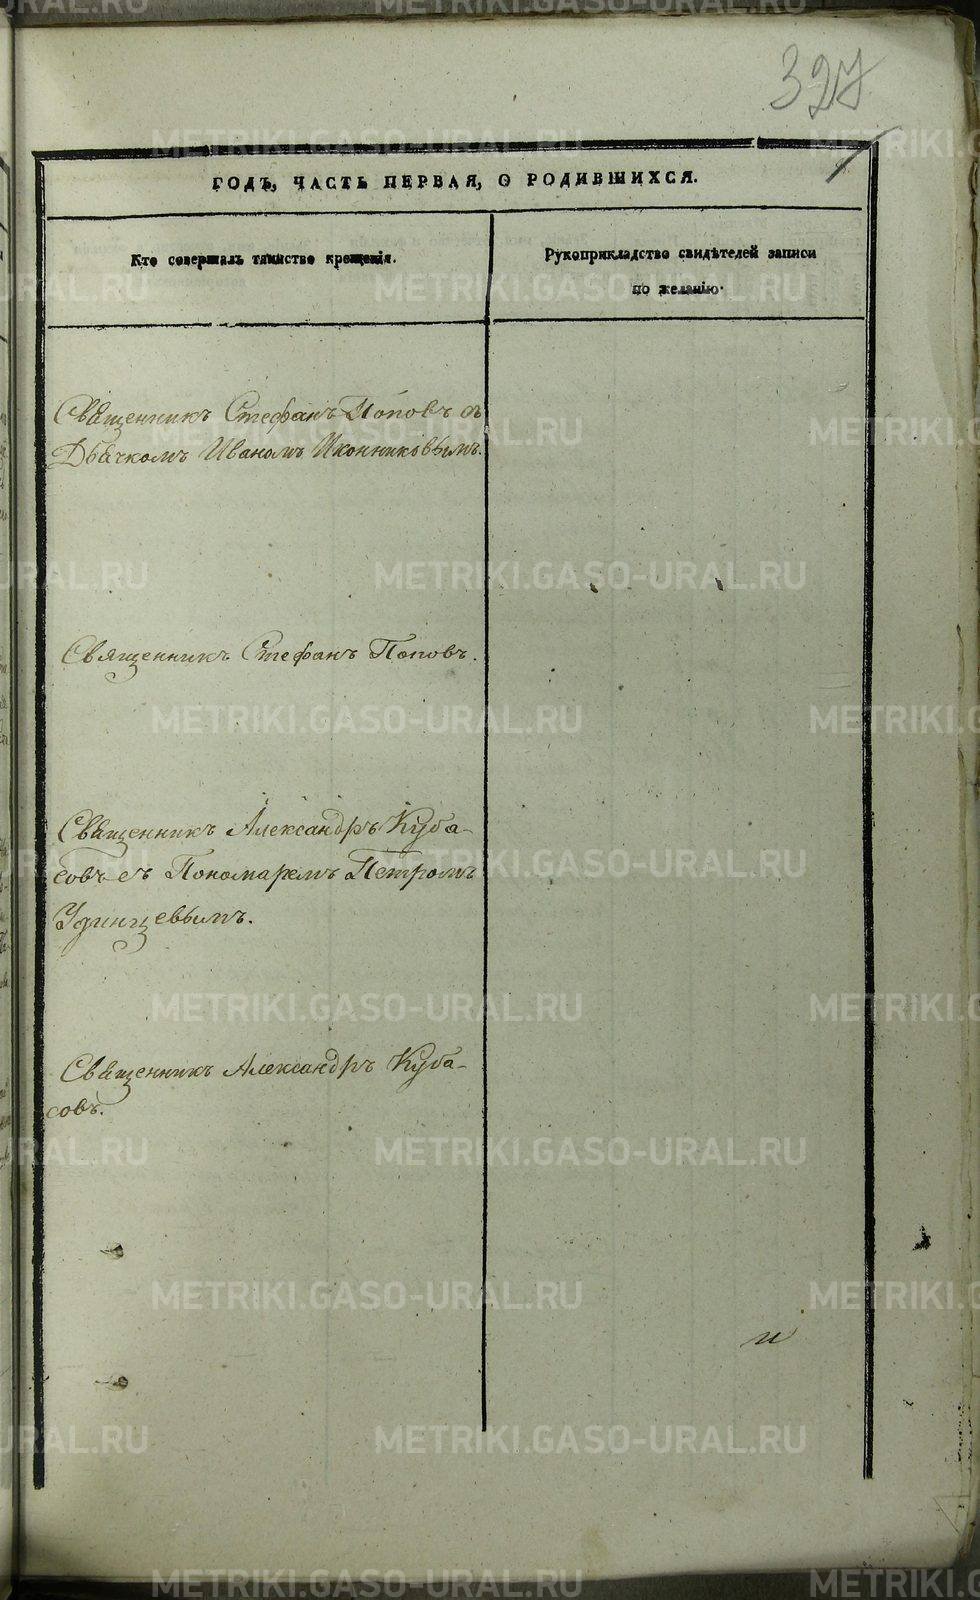 327
ГОДЪ, ЧАСТЬ ПЕРВАЯ, О РОДИВШИХСЯ.
Кто совершалъ таинство крещенія.
Рукоприкладство свидѣтелей записи
по желанію.
Священникъ Стефанъ Поповъ съ
Дьячкомъ Иваномъ Иконниковымъ.
Священникъ Стефанъ Поповъ.
Священникъ Александръ Куба-
совъ съ Пономаремъ Петромъ
Удинцевымъ.
Священникъ Александръ Куба-
совъ.
и
METRIKI.GASO-URAL.RU